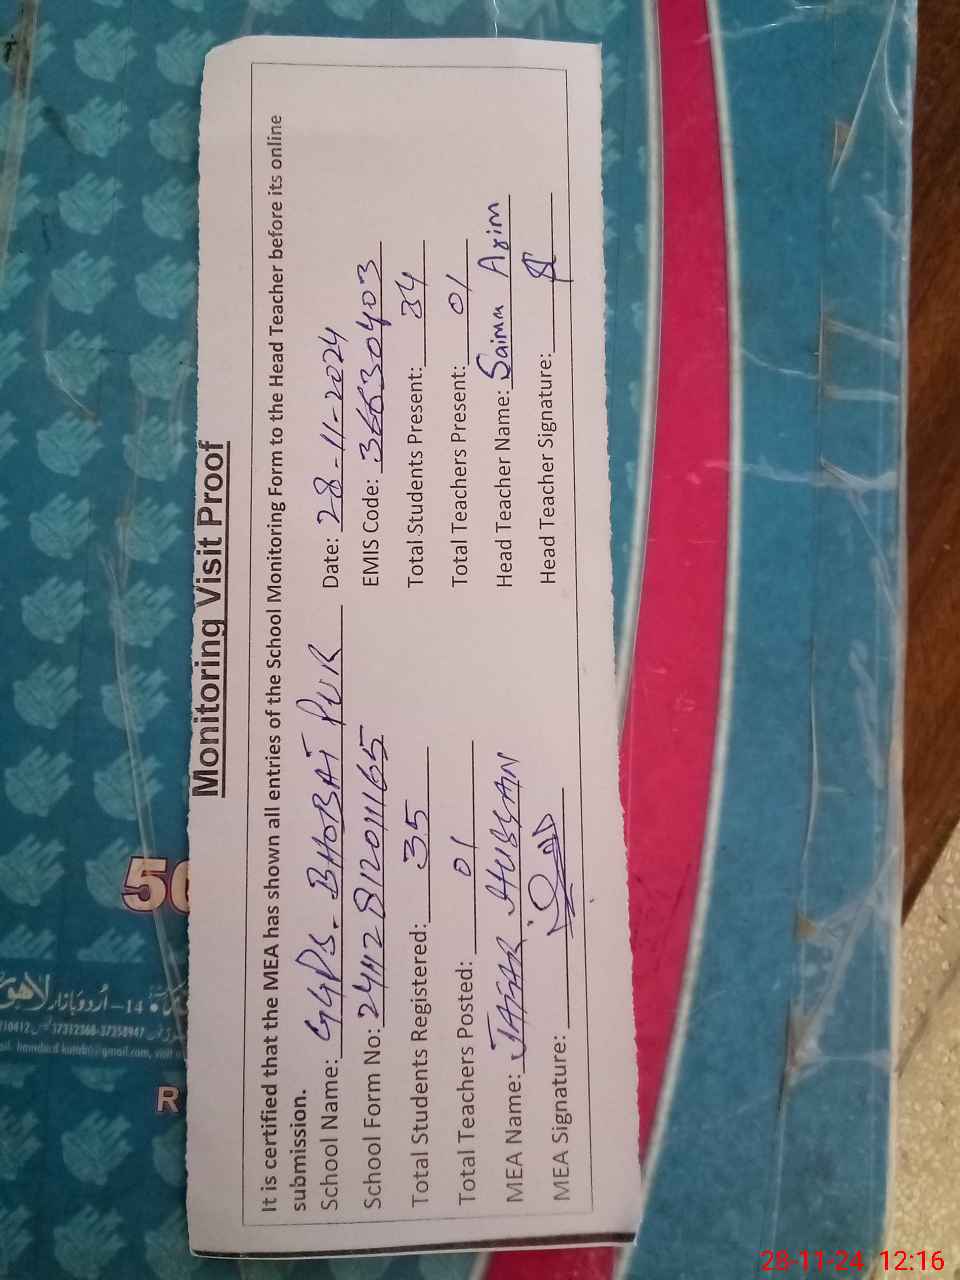 Monitoring Visit Proof
It is certified that the MEA has shown all entries of the School Monitoring Form to the Head Teacher before its online
submission.
School Name: GGPS. BHOBAT PUR Date: 28-11-2024
School Form No: 241128120111165 EMIS Code: 36630403
Total Students Registered: 35 Total Students Present: 34
Total Teachers Posted: 01 Total Teachers Present: 01
MEA Name: JAFAR HUSSAN Head Teacher Name: Saima Azim
MEA Signature: Head Teacher Signature:
14–اُردو بازار لاہور
37312368-37358947
R
28-11-24 12:16